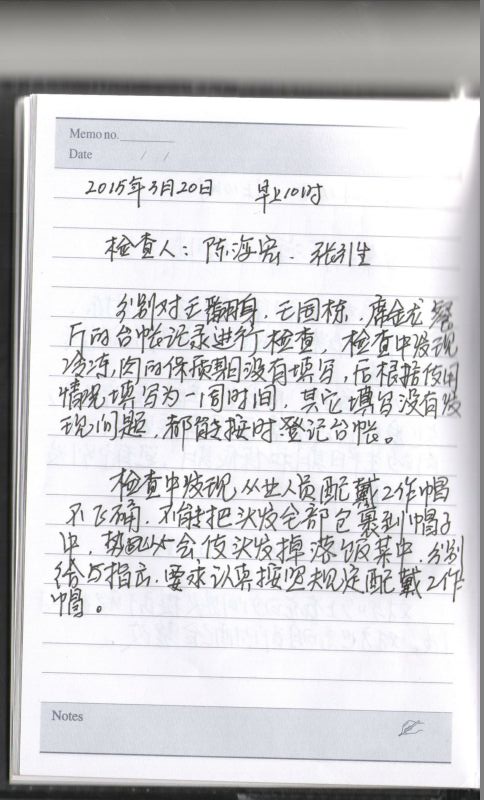 Memo no.
Date / /
2015年3月20日 早上10时
检查人：陈海宏、张引生
分别对王 、王国栋、席金龙餐
厅的台帐记录进行检查，检查中发现
冷冻肉的保质期没有填写，后根据使用
情况填写为一周时间，其它填写没有发
现问题，都能按时登记台帐。
检查中发现从业人员配戴工作帽
不正确，不能把头发全部包裹到帽子
中， 会使头发掉落饭菜中，分别
给与指示，要求认真按照规定配戴工作
帽。
Notes